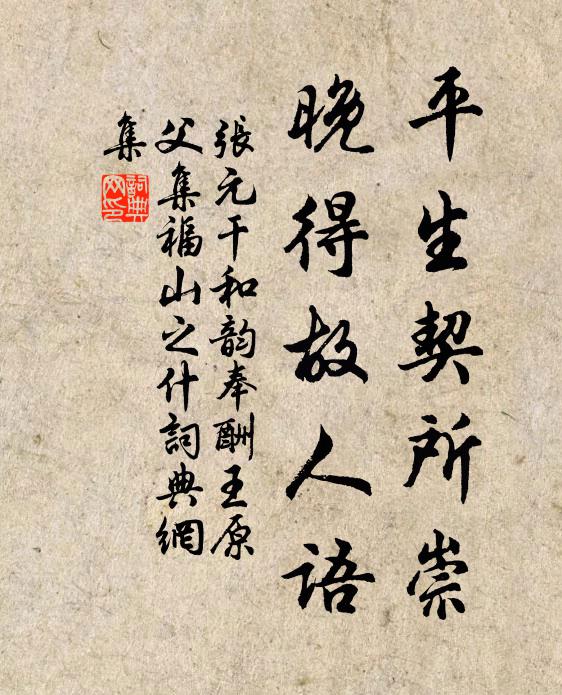 平生契所崇
晚得故人语
張元干和韵奉酬王原
父集福山之什詞典網
集
詞典
网印